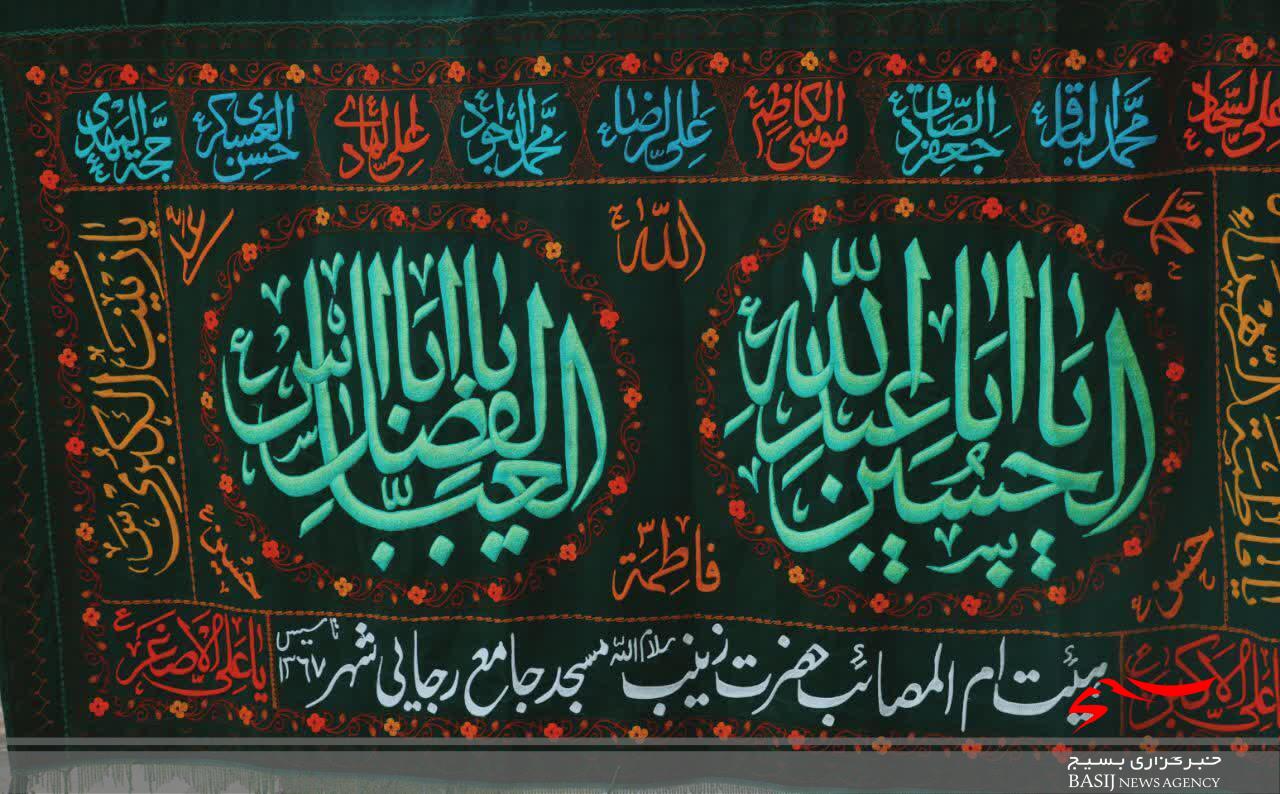 علی السجاد محمد الباقر جعفر الصادق موسی الکاظم علی الرضا محمد الجواد علی الهادی حسن العسکری حجة المهدی
محمد
الله
علی
یا ابا عبدالله الحسین
یا ابا الفضل العباس
یا زینب الکبری
حسن
فاطمة
حسین
یا علی الاکبر
هیئت ام المصائب حضرت زینب سلام الله مسجد جامع رجایی شهر تاسیس ۱۳۶۷
یا علی الاصغر
بسیج
خبرگزاری بسیج
BASIJ NEWS AGENCY